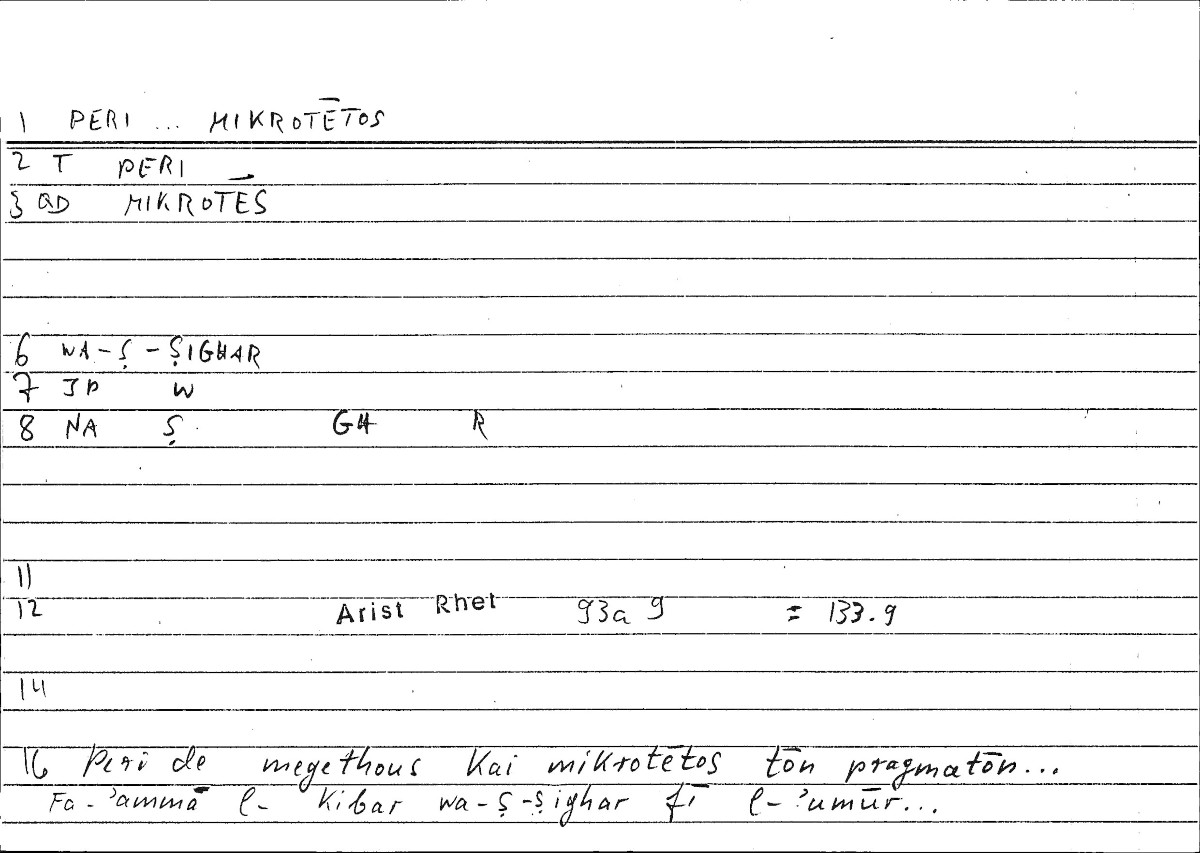 1 PERI ... MIKROTĒTOS
2 T PERI
3 QD MIKROTĒS
6 WA-Ṣ-ṢIGHAR
7 JP W
8 NA Ṣ GH R
11
12 Arist Rhet 93a 9 = 133.9
14
16 Peri de megethous kai mikrotētos tōn pragmatōn...
Fa-ʾammā l- Kibar wa-ṣ-ṣighar fī l-ʾumūr...